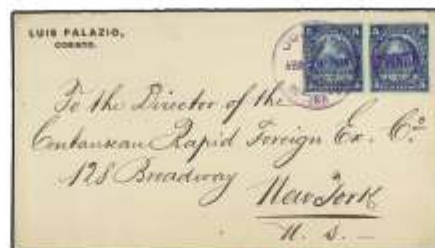 LUIS PALAZIO,
CORINTO.
To the Director of the
Centaurean Rapid Foreign Ex. Cº.
128 Broadway
New York
U. S. —